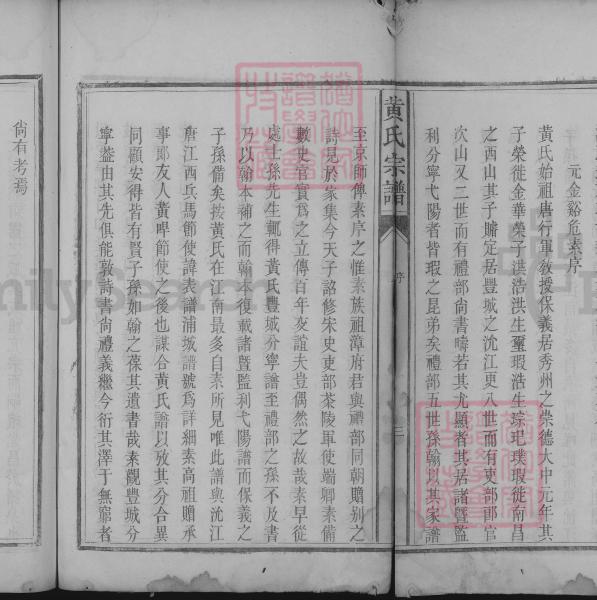 元金谿危素序
黃氏始祖唐行軍教授保義居秀州之崇德大中元年其
子榮徙金華榮子洪浩洪生璽瑕浩生琮玘璞瑕徙南昌
之西山其子贍定居豐城之沈江更八世而有吏部郎官
次山又二世而有禮部尚書疇若其尤顯者其居諸暨監
利分寧弋陽者皆瑕之昆弟矣禮部五世孫翰以其家譜
黃氏宗譜
序
二
至京師俾素序之惟素族祖漳府君與禮部同朝贈别之
詩見於家集今天子詔修宋史吏部茶陵軍使端卿素備
數史官實為之立傳百年交誼夫豈偶然之故哉素早從
處士孫先生輒得黃氏豐城分寧譜至禮部之孫不及書
乃以翰本補之而翰本復載諸暨監利弋陽譜而保義之
子孫備矣按黃氏在江南最多自素所見唯此譜與沈江
唐江西兵馬節使諱表譜浦城譜號為詳細素高祖贈承
事郎友人黃㽦節使之後也謀合黃氏譜以攷其分合異
同顧安得皆有賢子孫如翰之葆其遺書哉素觀豐城分
寧葢由其先俱能敦詩書尚禮義繼今衍其澤于無窮者
尚有考焉
FamilySearch